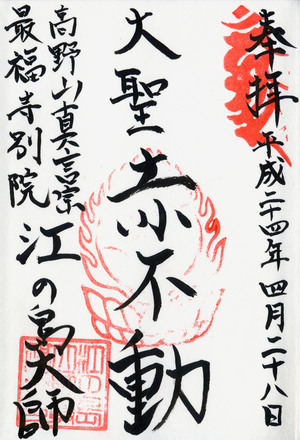 奉拝 平成二十四年四月二十八日
大聖赤不動
高野山真言宗
最福寺別院 江の島大師